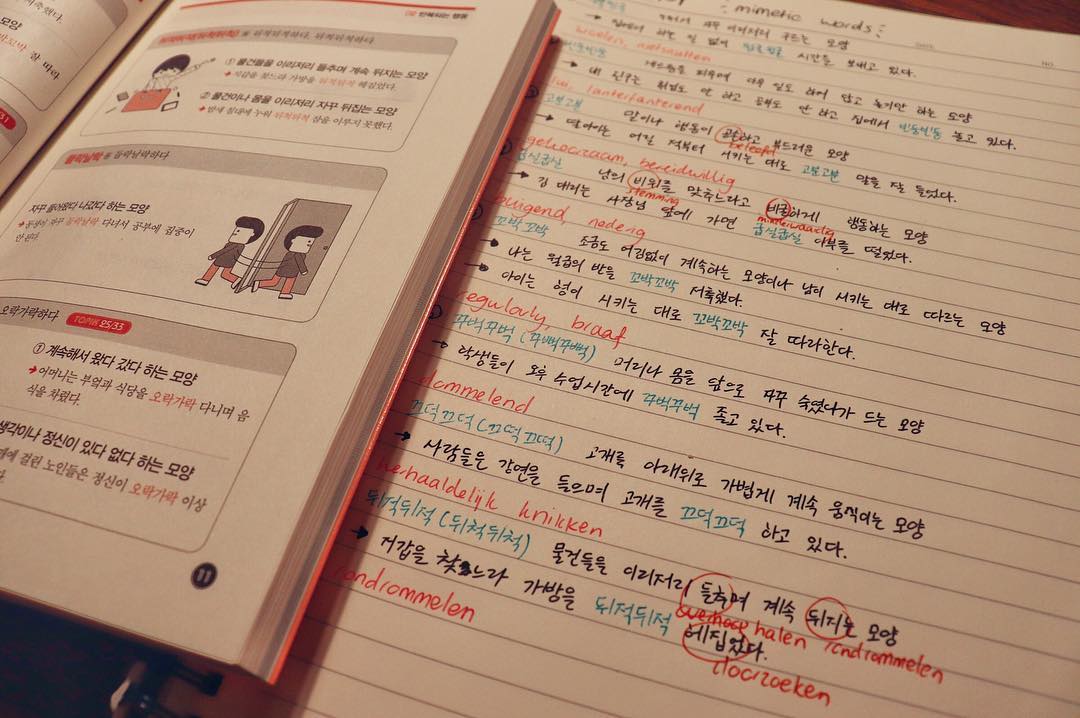 꼬박 잘 따라
02 반복되는 행동
뒤적뒤적(뒤척뒤척) 동 뒤적뒤적하다, 뒤척뒤척하다
① 물건들을 이리저리 들추며 계속 뒤지는 모양
→ 지갑을 찾느라 가방을 뒤적뒤적 헤집었다.
② 물건이나 몸을 이리저리 자꾸 뒤집는 모양
→ 밤새 침대에 누워 뒤척뒤척 잠을 이루지 못했다.
들락날락 동 들락날락하다
자꾸 들어왔다 나갔다 하는 모양
→ 동생이 자꾸 들락날락 다녀서 공부에 집중이
안 된다.
오락가락하다 TOPIK 25/33
① 계속해서 왔다 갔다 하는 모양
→ 어머니는 부엌과 식당을 오락가락 다니며 음
식을 차렸다.
생각이나 정신이 있다 없다 하는 모양
걸린 노인들은 정신이 오락가락 이상
11
: mimetic words :
자꾸 구르는 모양
하는 일 없이 시간을 보내고 있다.
게으름을 피우며 아무 일도 하려 않고 놀기만 하는 모양
→ 내 친구는 취업도 안 하고 공부도 안 하고 집에서 빈둥빈둥 놀고 있다.
lui, lanterfanterend
고분고분 말이나 행동이 공손하고 부드러운 모양
beleefd
→ 딸아이는 어릴 적부터 시키는 대로 고분고분 말을 잘 들었다.
gehoorzaam, bereidwillig
굽실굽실 남의 비위를 맞추느라고 비굴하게 행동하는 모양
stemming minderwaardig
→ 김 대리는 사장님 앞에 가면 굽실굽실 아부를 떨었다.
buigend, nederig
꼬박꼬박 조금도 어김없이 계속하는 모양이나 남이 시키는 대로 따르는 모양
→ 나는 월급의 반을 꼬박꼬박 저축했다.
→ 아이는 형이 시키는 대로 꼬박꼬박 잘 따라한다.
regularly, braaf
꾸벅꾸벅 (꾸뻑꾸뻑) 머리나 몸을 앞으로 자꾸 숙였다가 드는 모양
→ 학생들이 오후 수업시간에 꾸벅꾸벅 졸고 있다.
dommelend
끄덕끄덕 (끄떡끄떡) 고개를 아래위로 가볍게 계속 움직이는 모양
→ 사람들은 강연을 들으며 고개를 끄덕끄덕 하고 있다.
herhaaldelijk knikken
뒤적뒤적 (뒤척뒤척) 물건들을 이리저리 들추며 계속 뒤지는 모양
overhoop halen rondrommelen
→ 지갑을 찾느라 가방을 뒤적뒤적 헤집었다.
rondrommelen doorzoeken